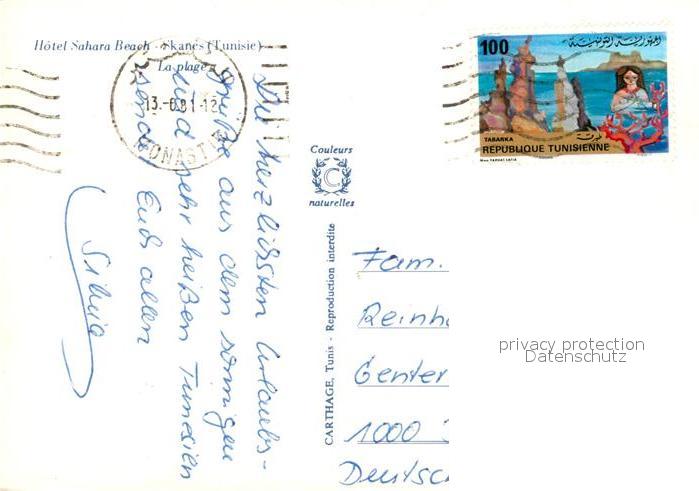 Hôtel Sahara Beach - Skanes (Tunisie)
La plage
13.-6 81-12
MONASTIR
Die herzlichsten Urlaubs-
grüße aus dem sonnigen
und sehr heißen Tunesien
sendet Euch allen
Silvia
Couleurs
C
naturelles
CARTHAGE, Tunis - Reproduction interdite
100
الجمهورية التونسية
TABARKA
طبرقة
REPUBLIQUE TUNISIENNE
Fam.
Reinh
Genter
1000
Deutsc
privacy protection
Datenschutz